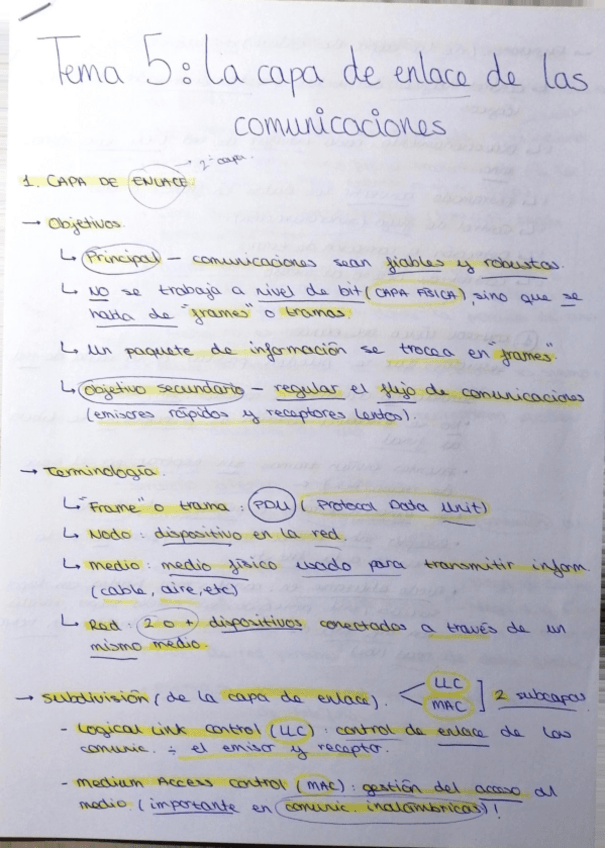 Tema 5: La capa de enlace de las
comunicaciones
→ 2ª capa.
1. CAPA DE ENLACE.
→ Objetivos.
↳ Principal – comunicaciones sean fiables y robustas.
↳ NO se trabaja a nivel de bit (CAPA FÍSICA), sino que se
habla de "frames" o tramas.
↳ Un paquete de información se trocea en "frames"
↳ Objetivo secundario – regular el flujo de comunicaciones
(emisores rápidos y receptores lentos).
→ Terminología.
↳ "Frame" o trama : PDU ( Protocol Data Unit)
↳ Nodo : dispositivo en la red.
↳ medio : medio físico usado para transmitir inform
(cable, aire, etc)
↳ Red : 2 o + dispositivos conectados a través de un
mismo medio.
→ subdivisión ( de la capa de enlace). < LLC
MAC ] 2 subcapas
- Logical Link Control ( LLC) : control de enlace de las
comunic. ÷ el emisor y receptor.
- Medium Access Control ( MAC) : gestión del acceso al
medio. ( importante en comunic. inalámbricas) !